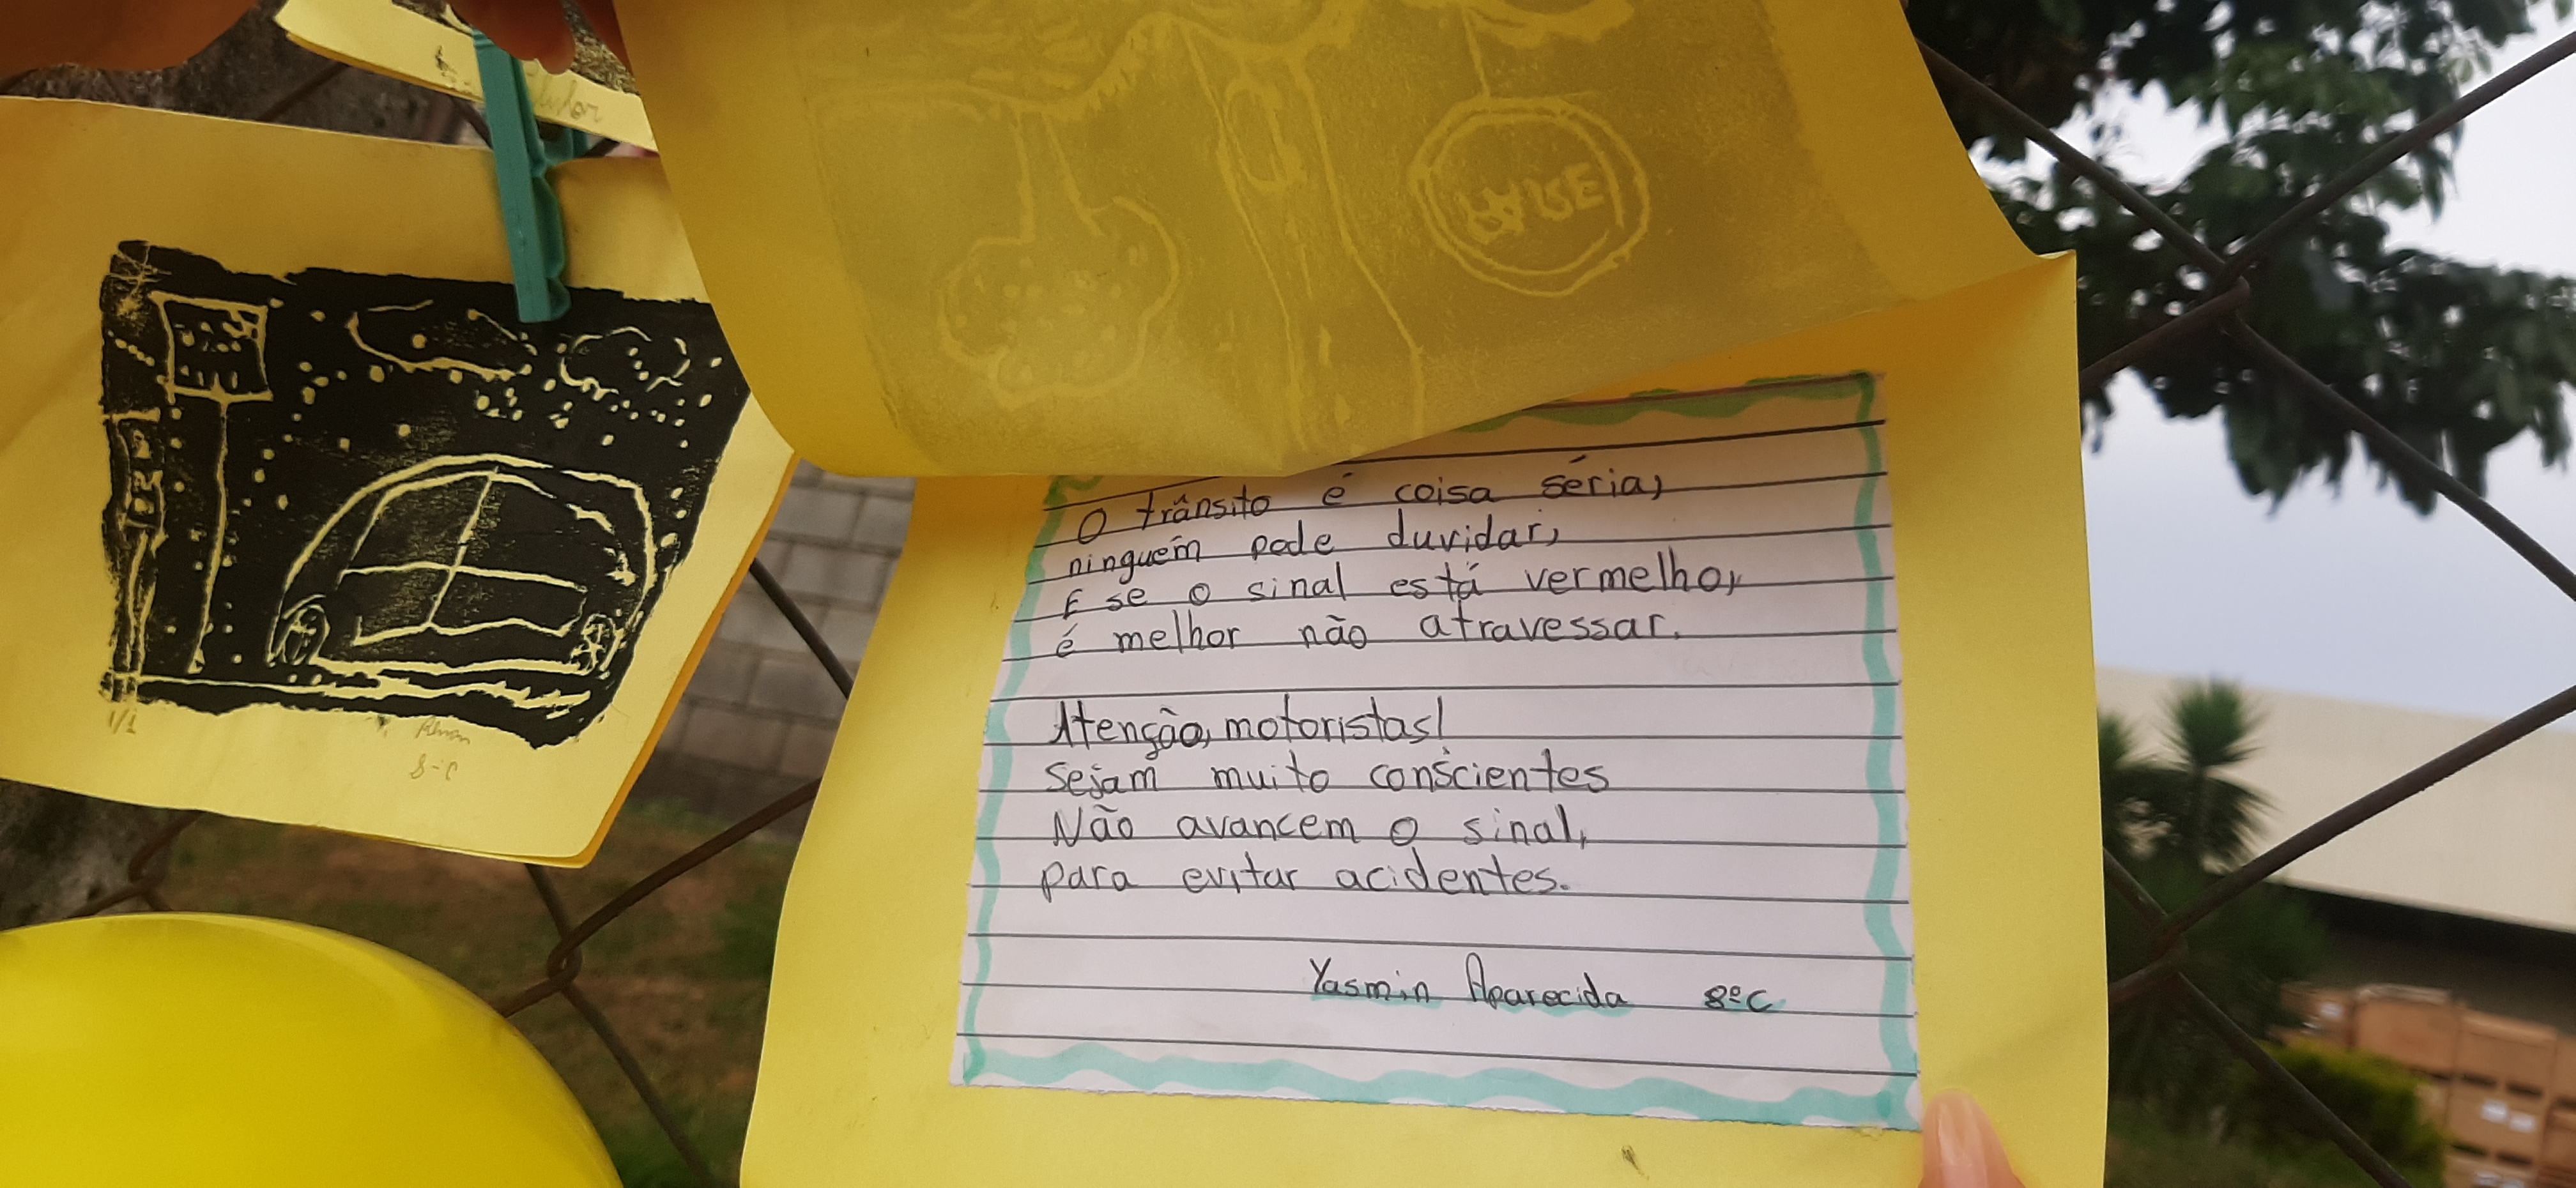 O trânsito é coisa séria,
ninguém pode duvidar,
E se o sinal está vermelho,
é melhor não atravessar.
Atenção, motoristas!
Sejam muito conscientes
Não avancem o sinal,
para evitar acidentes.
Yasmin Aparecida 8ºC
1/1
8-C